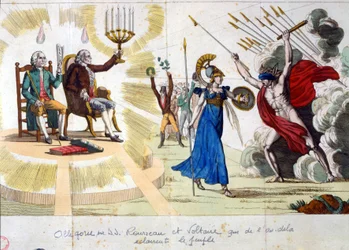 Allégorie sur J.J. Rousseau et Voltaire qui de l'au-delà
éclairent le peuple